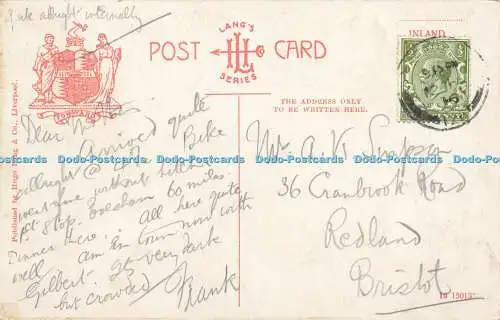 Bike allright internally
LANG'S
POST CARD
LH
SERIES
INLAND
FORWARD
THE ADDRESS ONLY
TO BE WRITTEN HERE.
Published by Hugo Lang & Co., Liverpool.
Dear
Arrived quite
allright @ Bike
went fine without hitch
1st stop. Evesham 60 miles.
Dinner there. All here quite
well am in town now with
Gilbert. It's very dark
but crowded Frank
Mr A. V. Simpson
36 Cranbrook Road
Redland
Bristol
19 15013
Dodo-Postcards Dodo-Postcards Dodo-Postcards Dodo-Postcards Dodo-Postcards Dodo-Postcards